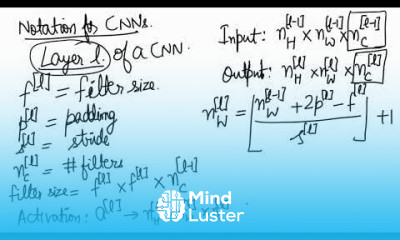 Notation for CNNs.
Layer l. of a CNN.
f^[l] = filter size.
p^[l] = padding
s^[l] = stride
n_c^[l] = # filters
filter size = f^[l] × f^[l] × n_c^[l-1]
Activation: a^[l] →
Input: n_H^[l-1] × n_W^[l-1] × n_c^[l-1]
Output: n_H^[l] × n_W^[l] × n_c^[l]
n_W^[l] = ⌊(n_W^[l-1] + 2p^[l] - f^[l]) / s^[l]⌋ + 1
Mind
Luster